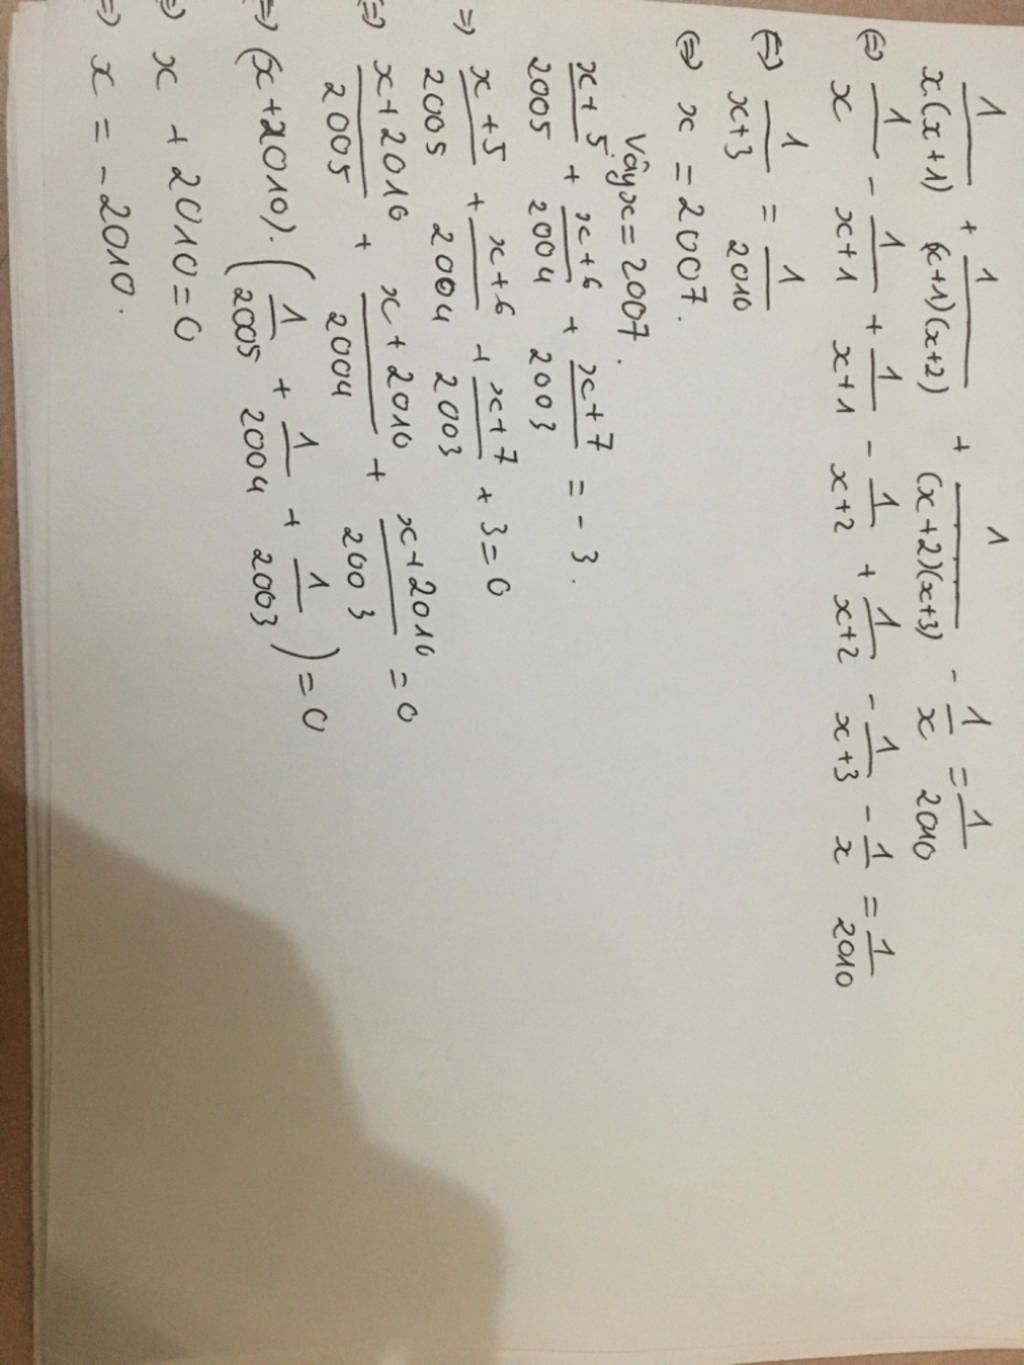 1/x.(x+1) + 1/(x+1)(x+2) + 1/(x+2)(x+3) - 1/x = 1/2010
(=) 1/x - 1/x+1 + 1/x+1 - 1/x+2 + 1/x+2 - 1/x+3 - 1/x = 1/2010
(=) 1/x+3 = 1/2010
(=) x = 2007.
Vậy x = 2007.
x+5/2005 + x+6/2004 + x+7/2003 = -3.
=) x+5/2005 + x+6/2004 + x+7/2003 + 3 = 0
=) x+2010/2005 + x+2010/2004 + x+2010/2003 = 0
=) (x+2010).(1/2005 + 1/2004 + 1/2003) = 0
=) x + 2010 = 0
=) x = -2010.